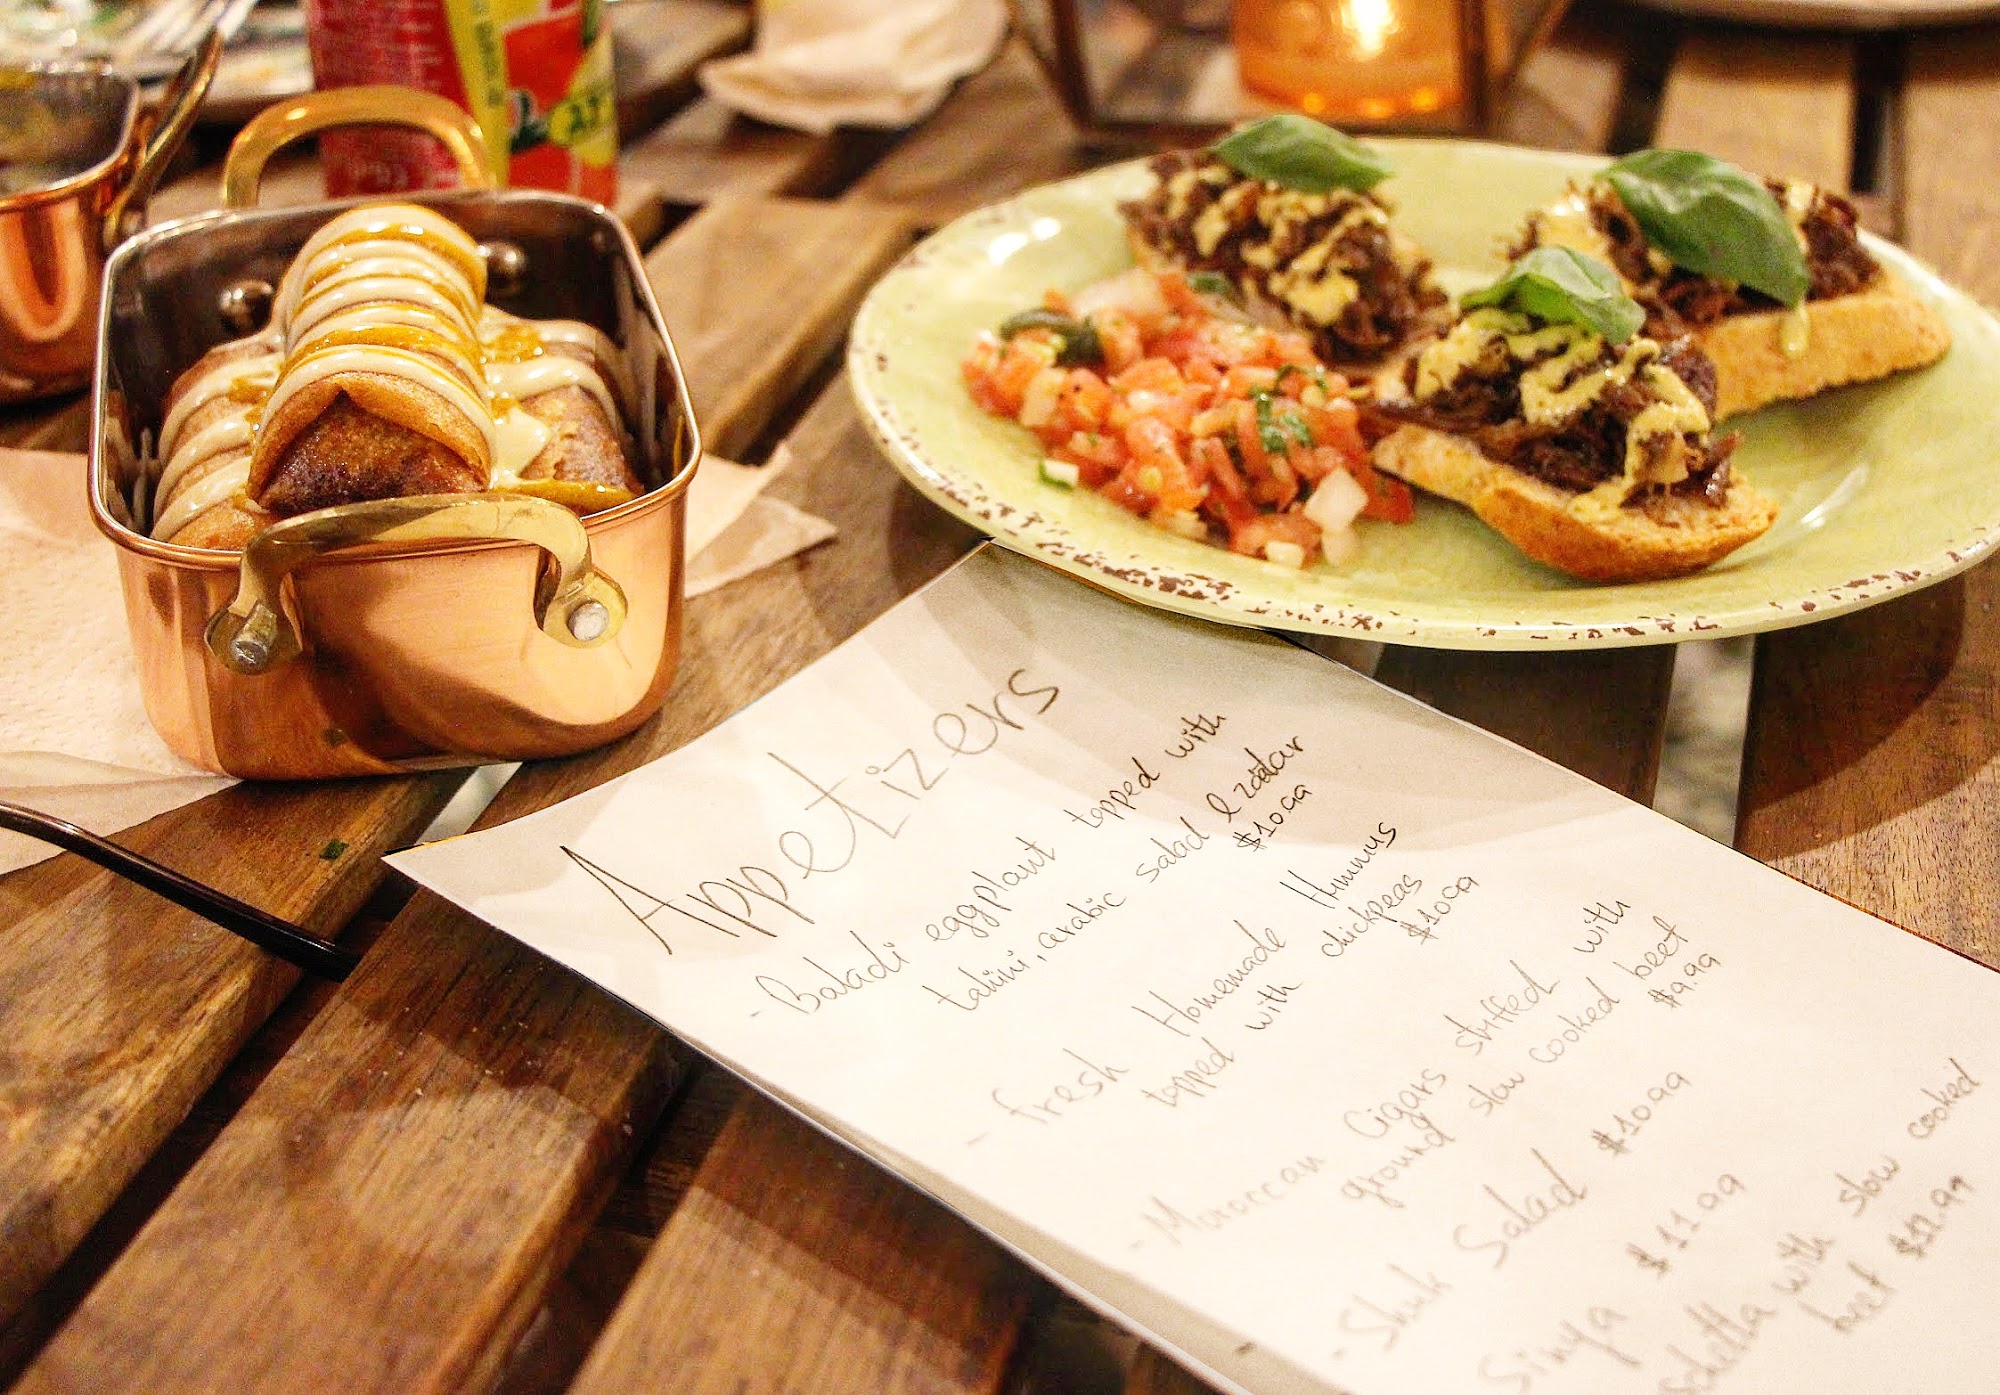 Appetizers
- Baladi eggplant topped with
tahini, arabic salad & zaatar
$10.99
- fresh Homemade Hummus
topped with chickpeas
$10.99
- Moroccan Cigars stuffed with
ground slow cooked beet
$9.99
- Shuk Salad $10.99
Sinya $11.99
schetta with slow cooked
beet